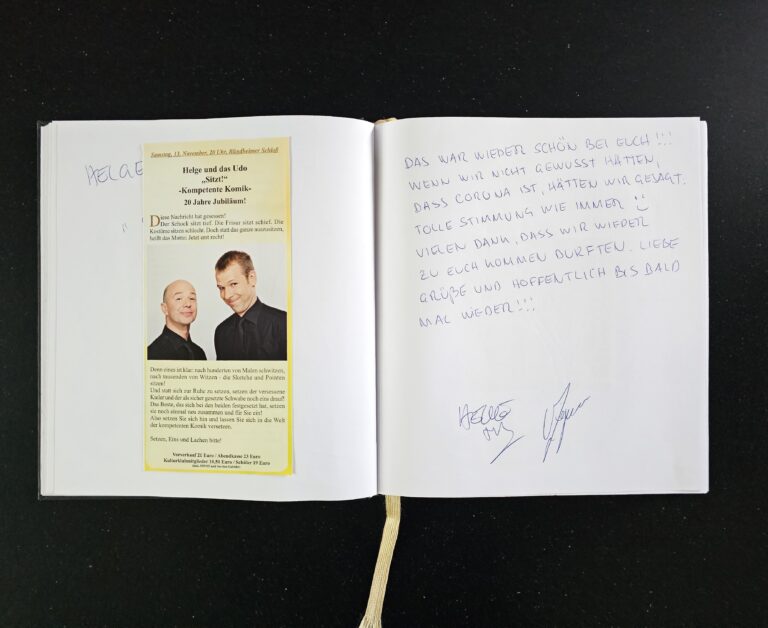 HELGE
Samstag, 13. November, 20 Uhr, Bläsiheimer Schloß
Helge und das Udo
„Sitzt!“
-Kompetente Komik-
20 Jahre Jubiläum!
Diese Nachricht hat gesessen!
Der Schock sitzt tief. Die Frisur sitzt schief. Die
Kostüme sitzen schlecht. Doch statt das ganze auszusitzen,
heißt das Motto: Jetzt erst recht!
Denn eines ist klar: nach hunderten von Malen schwitzen,
nach tausenden von Witzen – die Sketche und Pointen
sitzen!
Und statt sich zur Ruhe zu setzen, setzen der versessene
Kieler und der als sicher gesetzte Schwabe noch eins drauf!
Das Beste, das sich bei den beiden festgesetzt hat, setzen
sie noch einmal neu zusammen und für Sie ein!
Also setzen Sie sich hin und lassen Sie sich in die Welt
der kompetenten Komik versetzen.
Setzen, Eins und Lachen bitte!
Vorverkauf 21 Euro / Abendkasse 23 Euro
Kulturklubmitglieder 18,50 Euro / Schüler 19 Euro
DAS WAR WIEDER SCHÖN BEI EUCH!!!
WENN WIR NICHT GEWUSST HÄTTEN,
DASS CORONA IST, HÄTTEN WIR GESAGT:
TOLLE STIMMUNG WIE IMMER
VIELEN DANK, DASS WIR WIEDER
ZU EUCH KOMMEN DURFTEN. LIEBE
GRÜßE UND HOFFENTLICH BIS BALD
MAL WIEDER!!!
HELGE